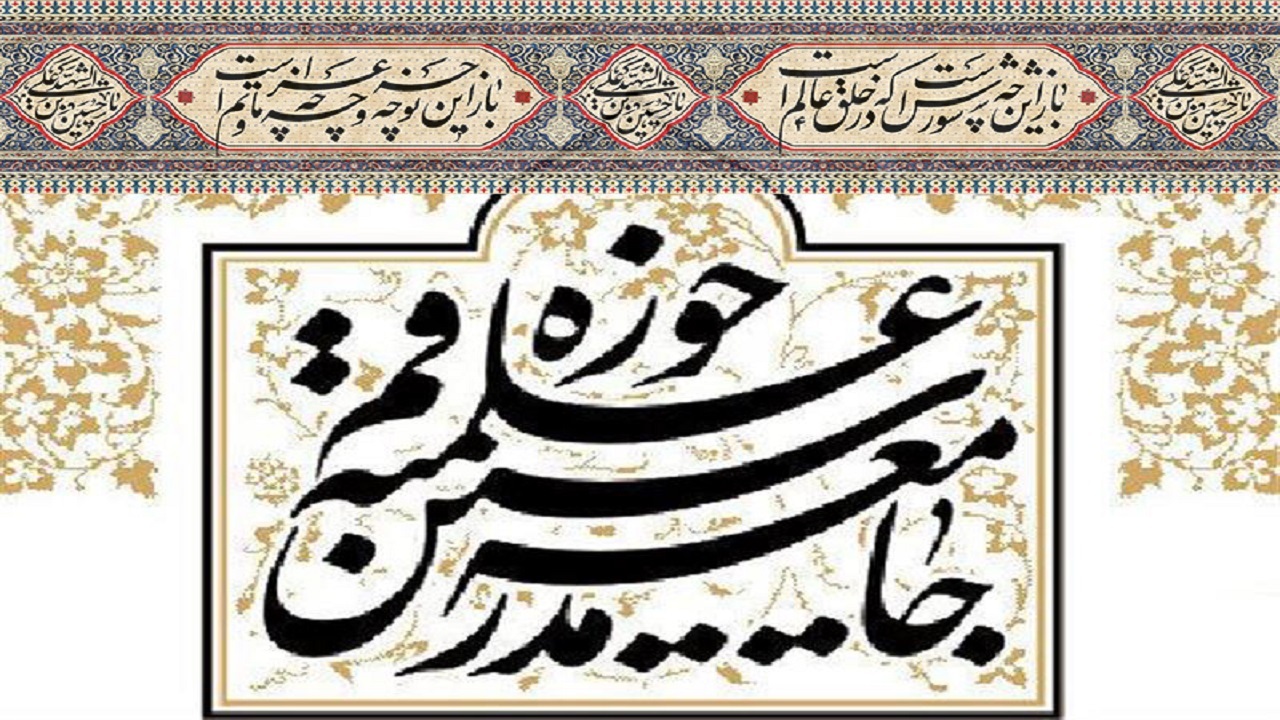 یا حسین بن علی الشهید
باز این چه شورش است که در خلق عالم است
یا حسین بن علی الشهید
باز این چه نوحه و چه عزا و چه ماتم است
یا حسین بن علی الشهید
جامعه مدرسین
حوزه علمیه قم